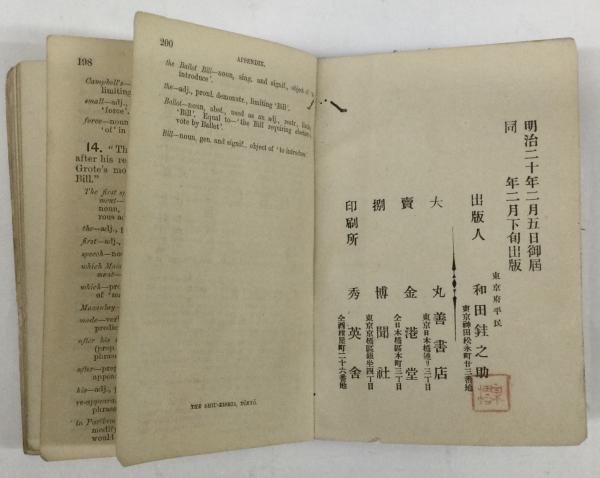 198
Campbell's—
limiting
small—adj.,
'force'.
force—noun
'of' in
14. "Th
after his re
Grote's mo
Bill."
The first sp
ment—
noun,
rous ac
the—adj., p
first—adj.,
speech—noun
which Maca
ment—
which—pro
of 'ma
Macaulay—
made—ver
predic
after his
(prep.
phrase
after—prep
appos
his—adj., p
re-appeara
phrase
'to Parliam
modify
would
200
APPENDIX.
the Ballot Bill—noun, sing. and signif., object of 'to
introduce'.
the—adj., pronl. demonstr., limiting 'Bill'.
Ballot—noun, abst., used as an adj., restr., limiting
'Bill'. Equal to—'the Bill requiring electors to
vote by Ballot'.
Bill—noun, gen. and signif., object of 'to introduce'.
THE SHUYEISHA, TŌKYŌ.
明治二十年二月五日御屆
同 年二月下旬出版
東京府平民
出版人 和田鉎之助
東京神田松永町廿三番地
大 丸善書店
東京日本橋通り三丁目
賣 金港堂
仝日本橋區本町三丁目
捌 博聞社
東京京橋區銀坐四丁目
印刷所 秀英舍
仝西紺屋町二十六番地